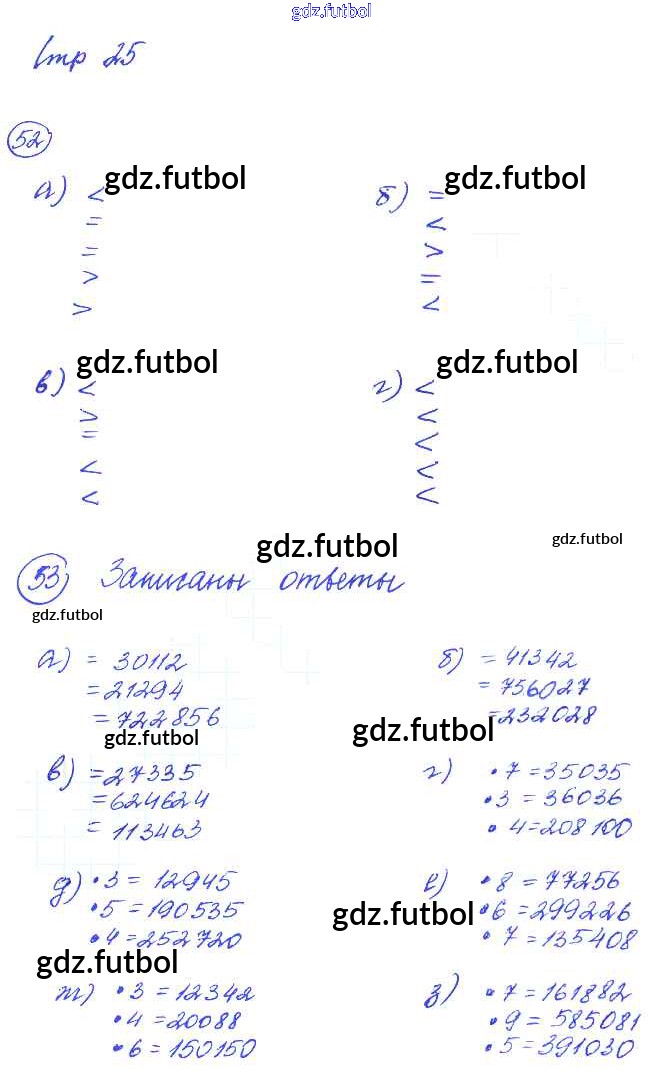 gdz.futbol
Стр 25
52
а) < gdz.futbol б) = gdz.futbol
= <
= >
> =
> <
gdz.futbol gdz.futbol
в) < г) <
> <
= <
< <
< <
gdz.futbol gdz.futbol
53 Записаны ответы
gdz.futbol
а) = 30112 б) = 41342
= 21294 = 756027
= 722856 = 232028
gdz.futbol gdz.futbol
в) = 27335 г) • 7 = 35035
= 624624 • 3 = 36036
= 113463 • 4 = 208100
д) • 3 = 12945 е) • 8 = 77256
• 5 = 190535 gdz.futbol • 6 = 299226
• 4 = 252720 • 7 = 135408
gdz.futbol
ж) • 3 = 12342 з) • 7 = 161882
• 4 = 20088 • 9 = 585081
• 6 = 150150 • 5 = 391030